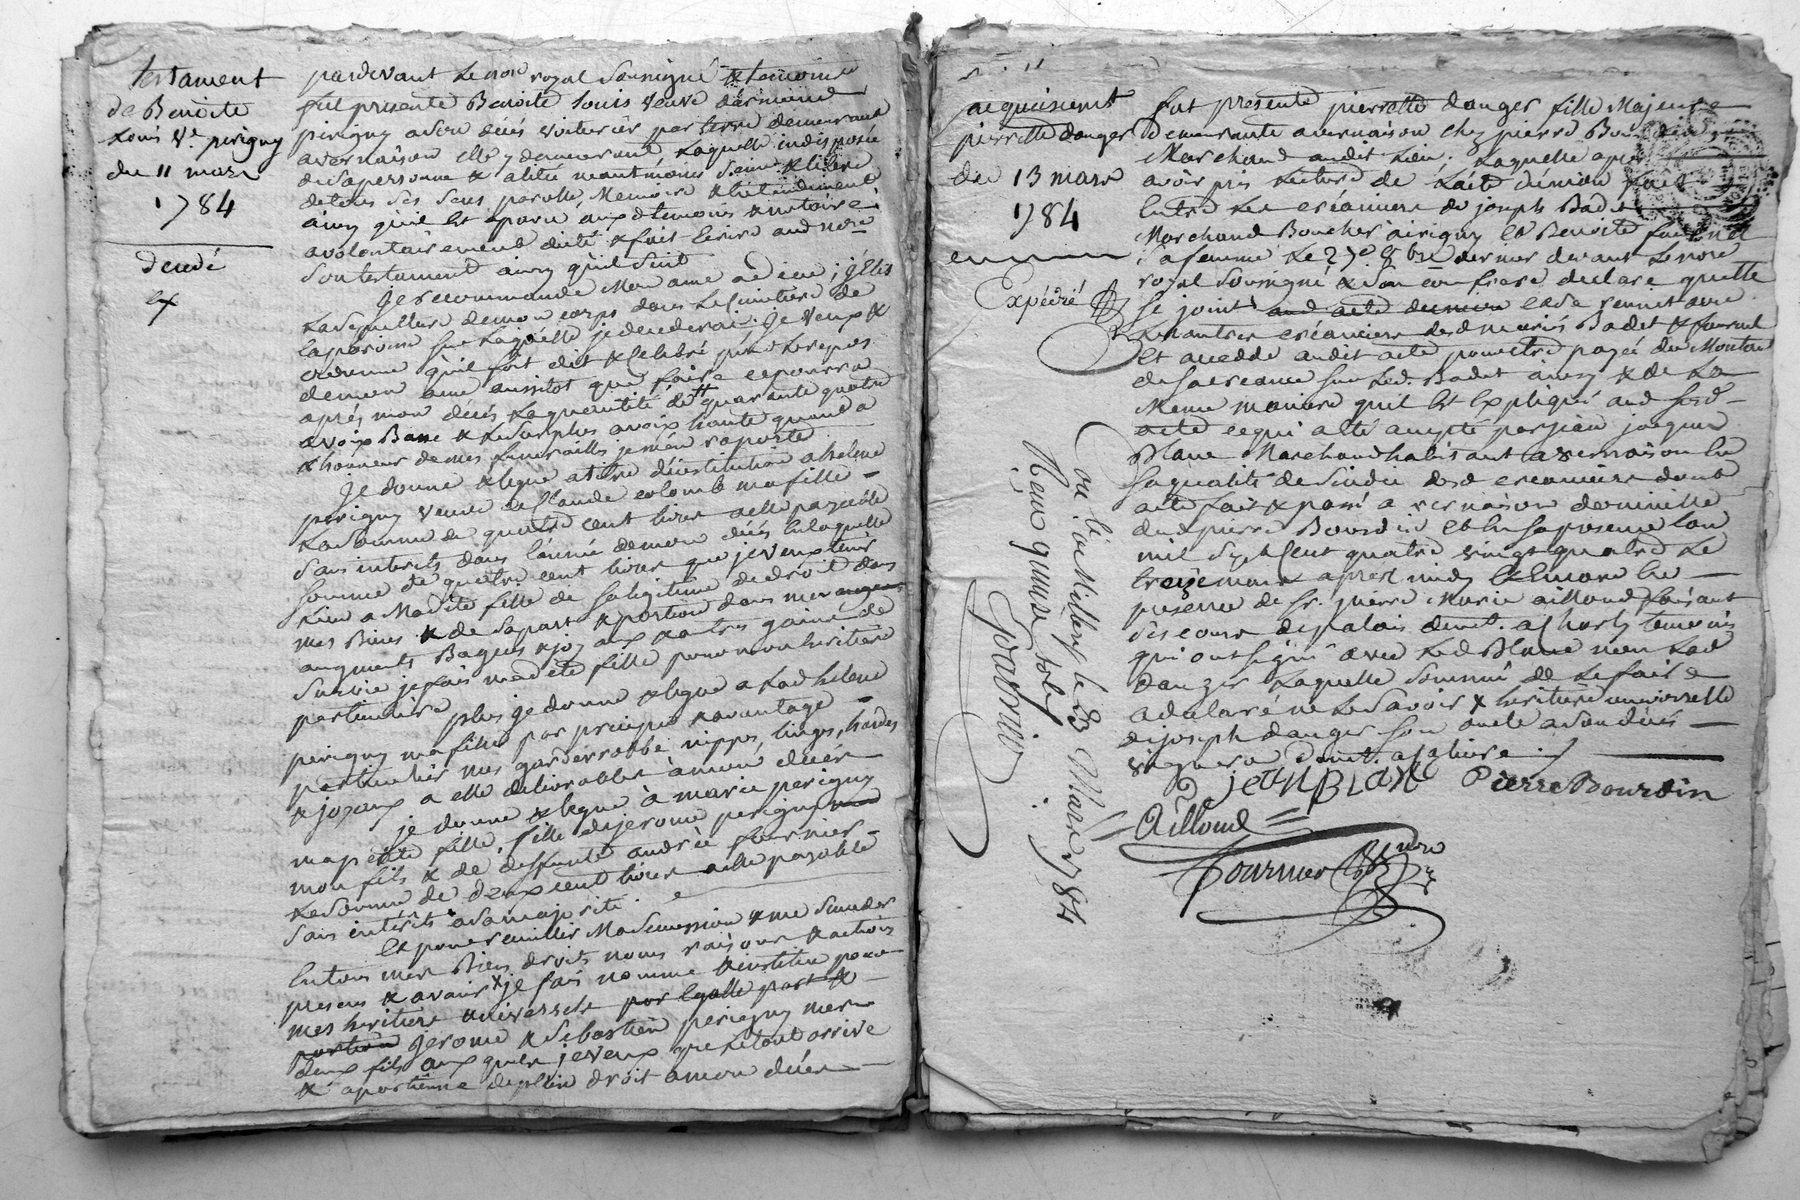 testament
de Benoite
Louis Ve. perigny
du 11 mars
1784
decedé
pardevant le nore royal soussigné & temoins
fut presente Benoite Louis veuve
perigny a son décès voiturier par terre demeurant
a vernaison elle y demeurant laquelle indisposée
de sa personne & alitée neantmoins saine & libre
de tous ses sens, parolle, Memoire & entendement
ainsy qu'il est aparu aux temoins & notaire
a volontairement dicté & fait Ecrire aud nore
son testament ainsy qu'il suit
Je recommande Mon ame a dieu, j'Elis
la sepulture de mon corps dans le cimitiere de
la paroisse sur laquelle je decederai. Je veux &
ordonne qu'il soit dit & celebré pour le repos
de mon ame aussitot que faire ce pourra
après mon décès la quantité de quarante quatre
a voix Basse & le surplus a voix haute quand a
& honneur de mes funerailles je m'en raporte
Je donne & legue a titre d'institution a helene
perigny veuve de Claude colomb ma fille
la somme de quatre cent livres a elle payable
sans interets dans l'année de mon décès la laquelle
somme de quatre cent livres que je veux tenir
lieu a Madite fille de sa legitime de droit dans
mes Biens & de sa part & portion dans mes
augments Bagues & joyaux & autres gains de
survie je fais madite fille pour mon heritiere
particuliere
plus je donne & legue a lad helene
perigny ma fille par preciput & avantage
particulier mes garderrobbe nippes, linges, hardes
& joyaux a elle delivrables à mon décès
je donne & legue à marie perigny
ma petite fille, fille de jerome perigny
mon fils & de deffunte andrée fournier
la somme de deux cent livres a elle payable
sans intérêts a sa majorité.
Et pour recuillir Ma succession & me succeder
En tous mes Biens, droits noms raisons & actions
presens & avenir & je fais nomme & institue pour
mes heritiers universels par egalle part &
portion jerome & sebastien perigny mes
deux fils aux quels je veux que le tout arrive
& apartienne de plein droit a mon décès
acquiescement
pierrette danger
du 13 mars
1784
Expédié
Con. lié a Millery le 23 Mars 1784
Reçu quinze sols
fut presente pierrette danger fille Majeure
demeurante a vernaison chez pierre Bourdin
Marchand audit Lieu. Laquelle apres
avoir pris lecture de l'acte d'union fait
Entre les créanciers de joseph Badet
Marchand Boucher a irigny et Benoite fournel
sa femme le 27e 8bre dernier devant le nore
royal soussigné & son confrere declare quelle
se joint aud acte dunion Ede vennet avec
les autres créanciers desd mariés Badet & fournel
et accedde audit acte pour être payée du Montant
de sa creance sur led. Badet ainsy & de la
Meme maniere quil Est Expliqué aud susd
acte ce qui a Eté accepté par jean jacques
Blanc Marchand habitant a vernaison En
sa qualité de sindic desd creanciers dont
acte fait & passé a vernaison domicille
dud pierre Bourdin Et En sa presence l'an
mil sept Cent quatre vingt quatre le
treize mars apres midy Et Encore En
presence de Sr. pierre Marie ailloud faisant
ses cours de palais demt. a Charly temoins
qui ont signé avec led Blanc non lad
danger laquelle sommée de le faire
a declaré ne le savoir & heritiere universelle
de joseph danger son oncle a son décès
vigneron demt. a
jean BLanc Pierre Bourdin
Ailloud
fournier nore